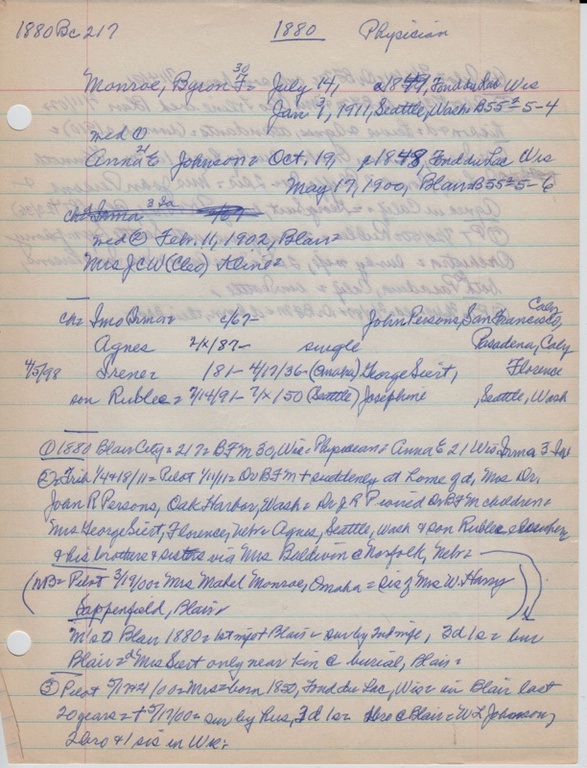 1880 Bc 217 1880 Physician
Monroe, Byron F= July 14, 1849, Fond du Lac Wis
30
Jan 3, 1911, Seattle, Wash= B55=5-4
med ①
Anna E Johnson= Oct. 19, 1848, Fond du Lac Wis
21
May 17, 1900, Blair= B55=5-6
ch= Irma 3 Ia
med ② Feb. 11, 1902, Blair=
Mrs J C W (Cleo) Kline=
ch= Imo Irma= c/67- John Persons, San Francisco, Caly
Agnes 2/x/87- single Pasadena, Caly
4/5/98 Irene= 181- 4/17/36- (Omaha) George Siert, Florence
son Rublee= 7/14/91- 7/x/50 (Seattle) Josephine , Seattle, Wash
① 1880 Blair City= 217= B F M 30, Wis= Physician= Anna E 21 Wis Irma 3 Ia
②= Trib 1/4+18/11= Pilot 1/11/11= Dr B F M + suddenly at home of d, Mrs Dr.
John R Persons, Oak Harbor, Wash= Dr J R P Dr B F M children=
Mrs George Siert, Florence, Nebr= Agnes, Seattle, Wash & son Rublee
& his brothers & sisters via Mrs Baldwin @ Norfolk, Nebr=
(NB= Pilot 3/19/00= Mrs Mabel Monroe, Omaha= sis of Mrs W. Harry
Sappenfeld, Blair=
M to Blair 1880= Blair= sur by 2nd wife, 3 d 1 s= bur
Blair= Mrs Siert only near kin @ burial, Blair=
③ Pilot 5/17+21/00= Mrs= born 1850, Fond du Lac, Wis= in Blair last
20 years= + 5/17/00= sur by hus, 3 d 1 s= bro @ Blair= W L Johnson,
2 bro & 1 sis in Wis=